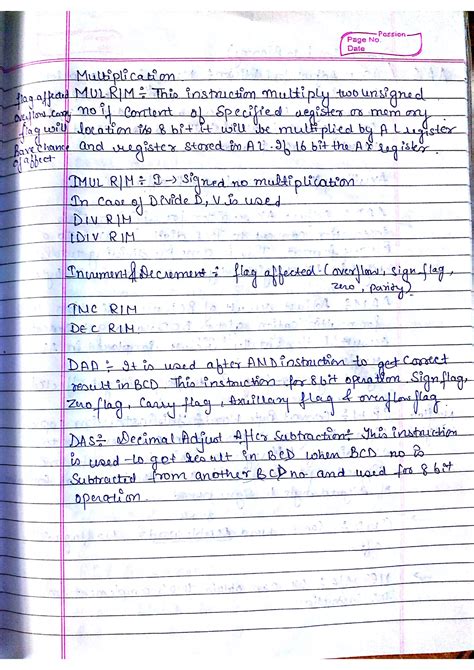 Passion
Page No.
Date
Multiplication
flag affected
overflow, carry
flag will
have chance
of affect
MUL R/M ÷ This instruction multiply two unsigned
no if content of specified register or memory
location is 8 bit it will be multiplied by AL register
and register stored in AL. If 16 bit the AX register.
IMUL R/M ÷ I → Signed no multiplication
In case of Divide D, V is used
DIV R/M
IDIV R/M
Increment & Decrement ÷ flag affected (overflow, sign flag,
zero, parity)
INC R/M
DEC R/M
DAA ÷ It is used after AND instruction to get correct
result in BCD. This instruction for 8 bit operation Sign flag,
zero flag, carry flag, Auxillary flag & overflow flag
DAS ÷ Decimal Adjust After Subtraction ÷ This instruction
is used to got result in BCD when BCD no is
Subtracted from another BCD no and used for 8 bit
operation.